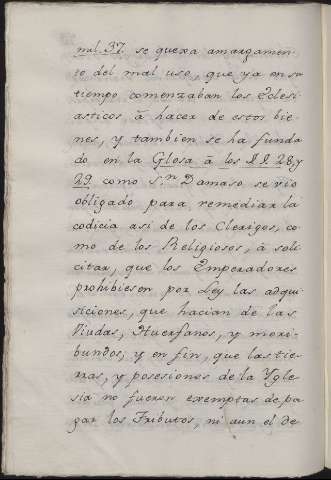 nul. 37. se quexa amargamen-
to del mal uso, que ya en su
tiempo comenzaban los Eclesi
asticos à hacer de estos bie-
nes, y tambien se ha funda
do en la Glosa à los §§. 28, y
29. como Sn. Damaso se vio
obligado para remediar la
codicia asi de los Clerigos, co-
mo de los Religiosos, à soli
citar, que los Emperadores
prohibiesen por Ley las adqui
siciones, que hacian de las
Viudas, Huerfanos, y mori-
bundos, y en fin, que las tie-
rras, y posesiones de la Ygle-
sia no fueron exemptas de pa
gar los Tributos, ni aun el de